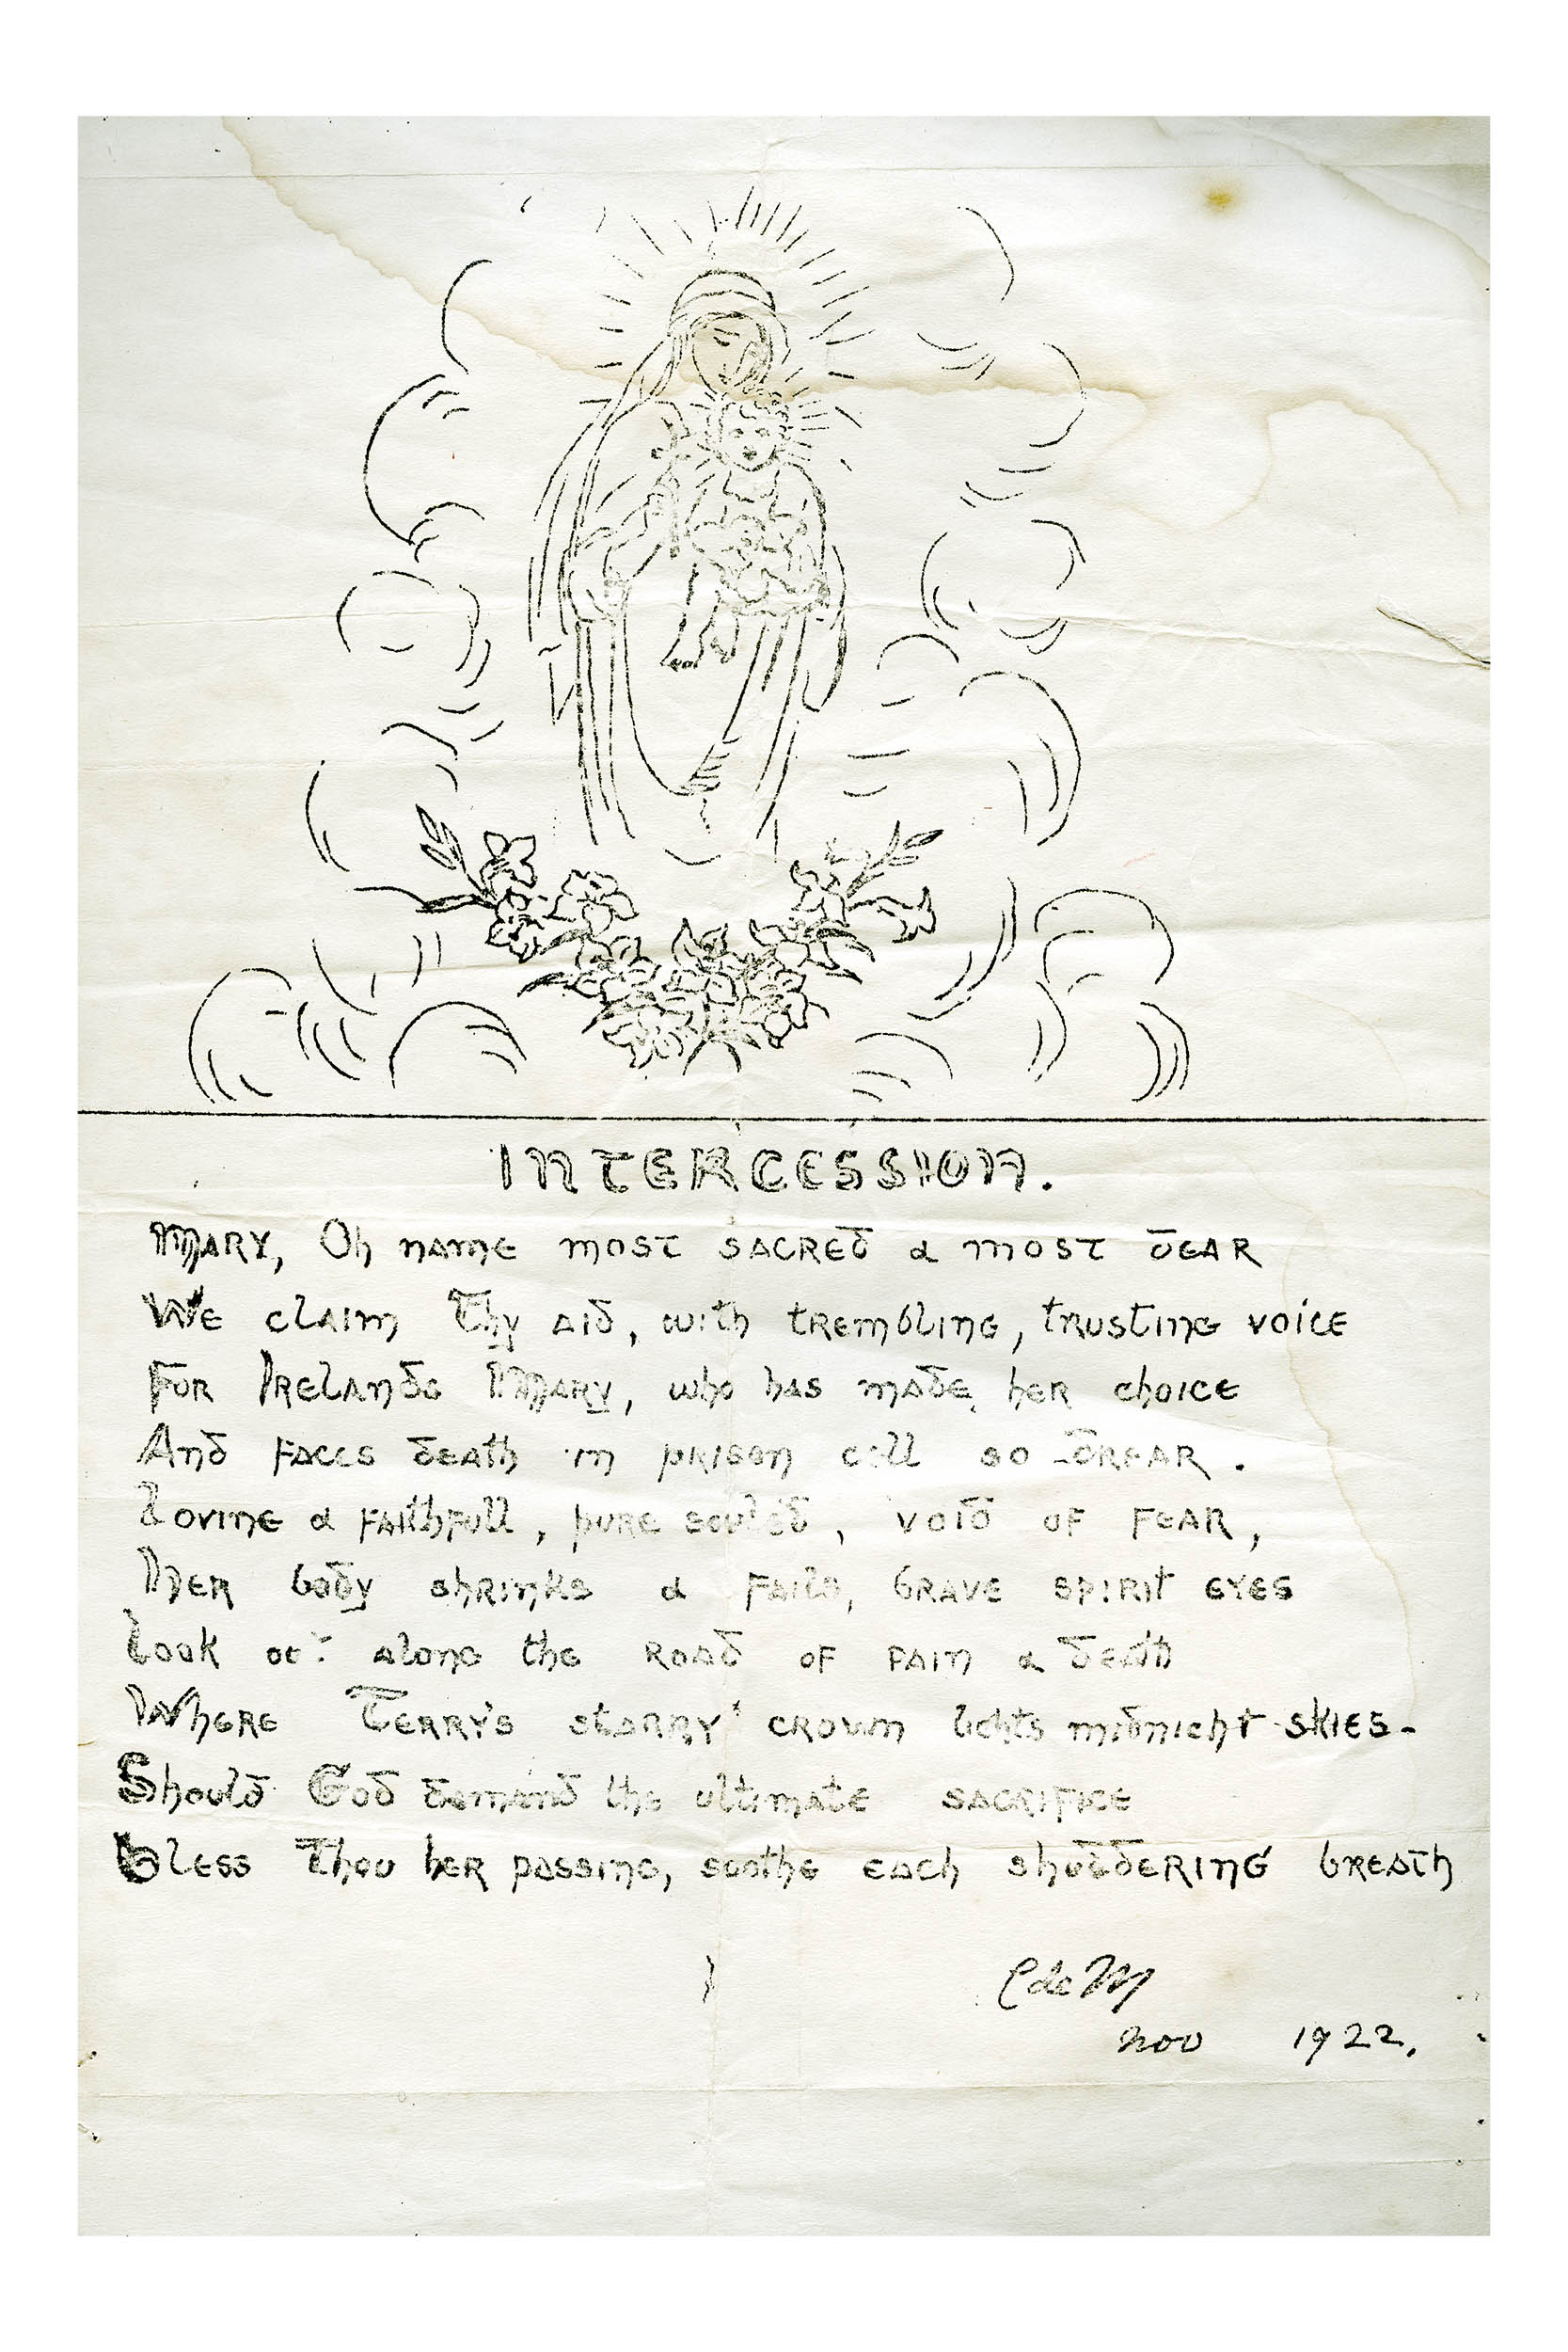 INTERCESSION.
MARY, Oh name most sacred & most dear
We claim Thy aid, with trembling, trusting voice
For Irelands Mary, who has made her choice
And faces death in prison cell so drear.
Loving & faithfull, pure souled, void of fear,
Her body shrinks & fails, grave spirit eyes
Look out along the road of pain & death
Where Terry's starry crown lights midnight skies-
Should God demand the ultimate sacrifice
Bless Thou her passing, soothe each shuddering breath
C de M
Nov 1922.